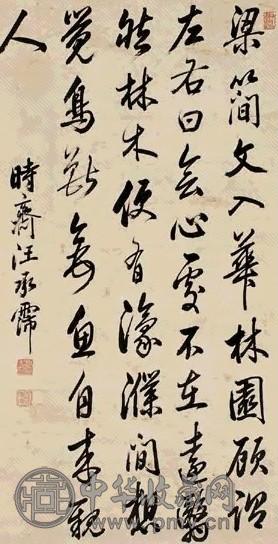 梁簡文入華林園顧謂
左右曰會心處不在遠翳
然林木便有濠濮間想
覺鳥獸禽魚自來親
人
時齋汪承霈
中华收藏网